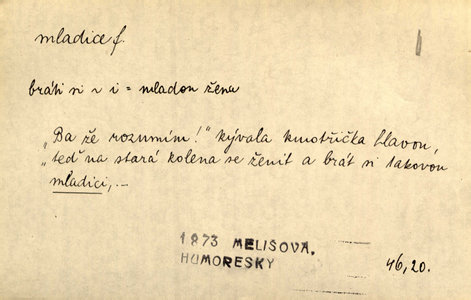 mladice f.
bráti si ~ i = mladou ženu
„Ba že rozumím!" kývala kmotřička hlavou,
„teď na stará kolena se ženit a brát si takovou
mladici,...
1873 MELIŠOVA,
HUMORESKY
46,20.